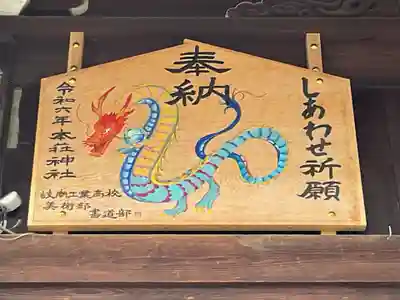 奉納
しあわせ祈願
令和六年本荘神社
岐南工業高校
美術部
書道部